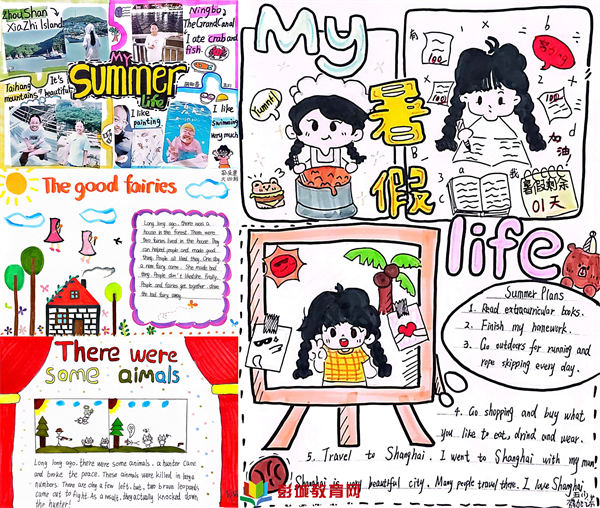 ZhouShan
XiaZhi Island
Ningbo
The Grand Canal
I ate crab and
fish.
MY
Summer
life
Taihang
mountains
It's
beautiful
I like
painting
I like
Swimming
Very much
The good fairies
Long long ago, there was a
house in the forest. There were
two fairies lived in the house. They
can helped people and made good
thing. People all liked they. One day
a new fairy came. She made bad
thing. People didn't like she. Finally,
People and fairies get together drove
the bad fairy away.
There were
some aimals
Long long ago, there were some animals, a hunter came
and broke the peace. These animals were killed in large
numbers. There are only a few left. but, two brave leopards
came out to fight. As a result, they actually knocked down
the hunter!
My
暑假
life
Yummy!
100
100
100
加油!
暑假剩余
01天
Summer Plans
1. Read extracurricular books.
2. Finish my homework.
3. Go outdoors for running and
rope skipping every day.
4. Go shopping and buy what
you like to eat, drink and wear.
5. Travel to Shanghai. I went to Shanghai with my mum!
Shanghai is very beautiful city. Many people travel there. I love Shanghai
彭城教育网